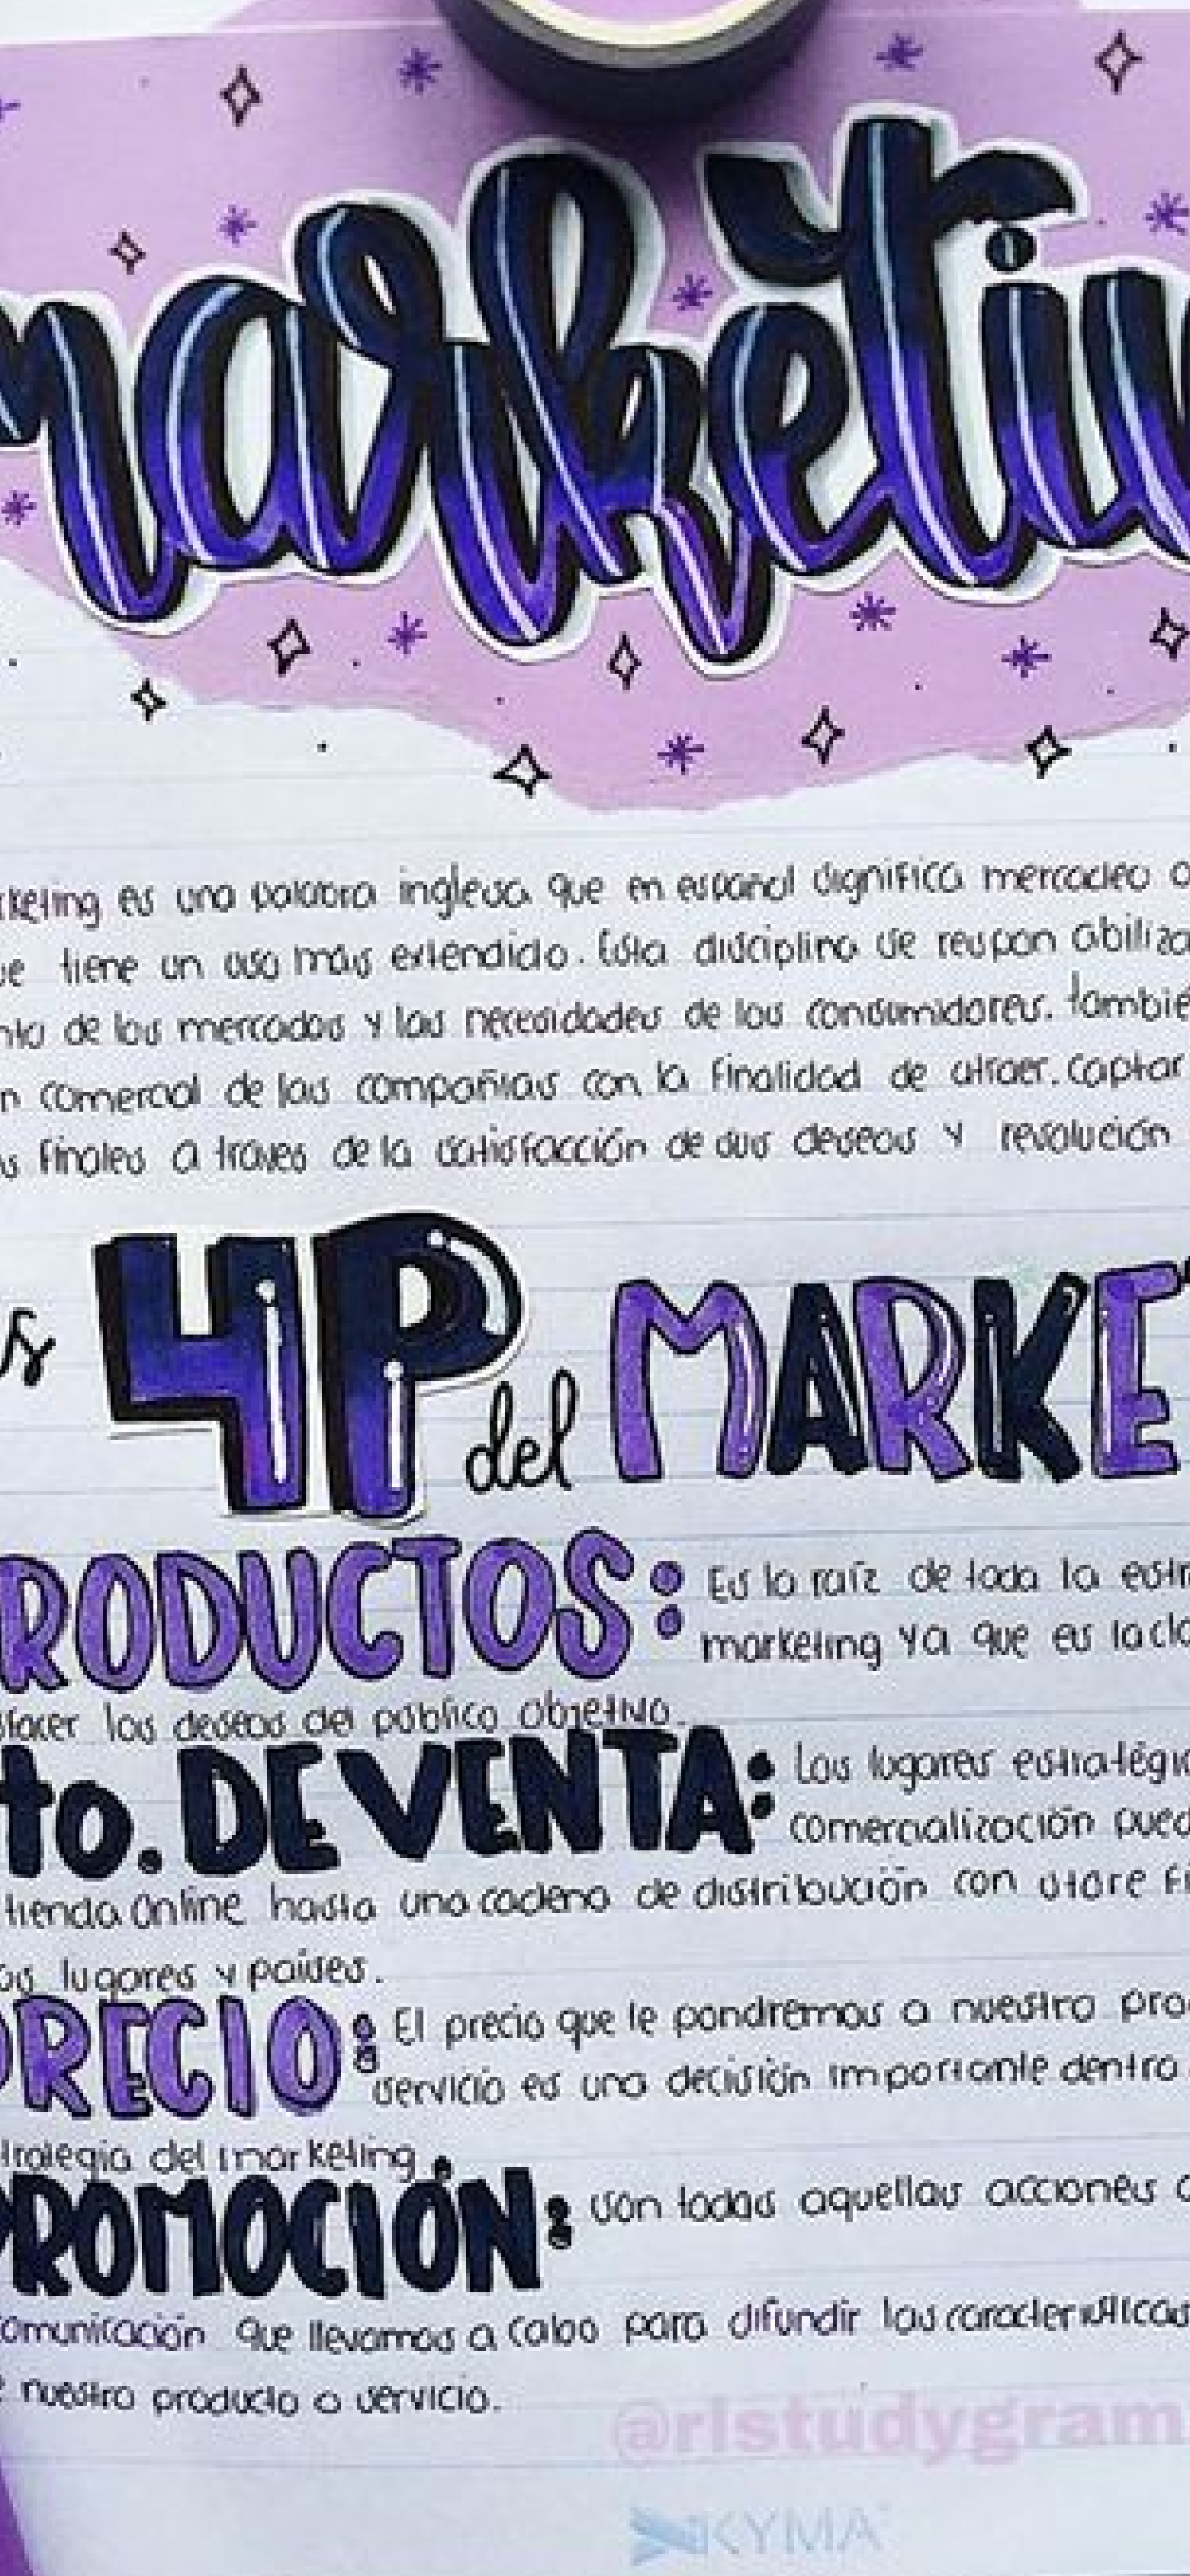 marketin
rketing es una palabra inglesa que en español dignifica mercadeo o
ue tiene un uso más extendido. Esta disciplina se respon abiliza
nto de los mercados y las necesidades de los consumidores. tambié
n comercial de las compañias con la finalidad de atraer. captar
s finales a traves de la satisfacción de sus deseos y resolución
s 4P del MARKE
RODUCTOS: Es la raíz de toda la estr
marketing ya que es la cla
sfacer los deseos del público objetivo.
to. DE VENTA: Los lugares estratégic
comercialización pued
tienda online hasta una cadena de distribución con store fí
os lugares y países.
PRECIO: El precio que le pondremos a nuestro pro
servicio es una decisión importante dentro
trategia del marketing.
PROMOCIÓN: son todas aquellas acciones
comunicación que llevamos a cabo para difundir las características
e nuestro producto o servicio.
@rlstudygram
KYMA